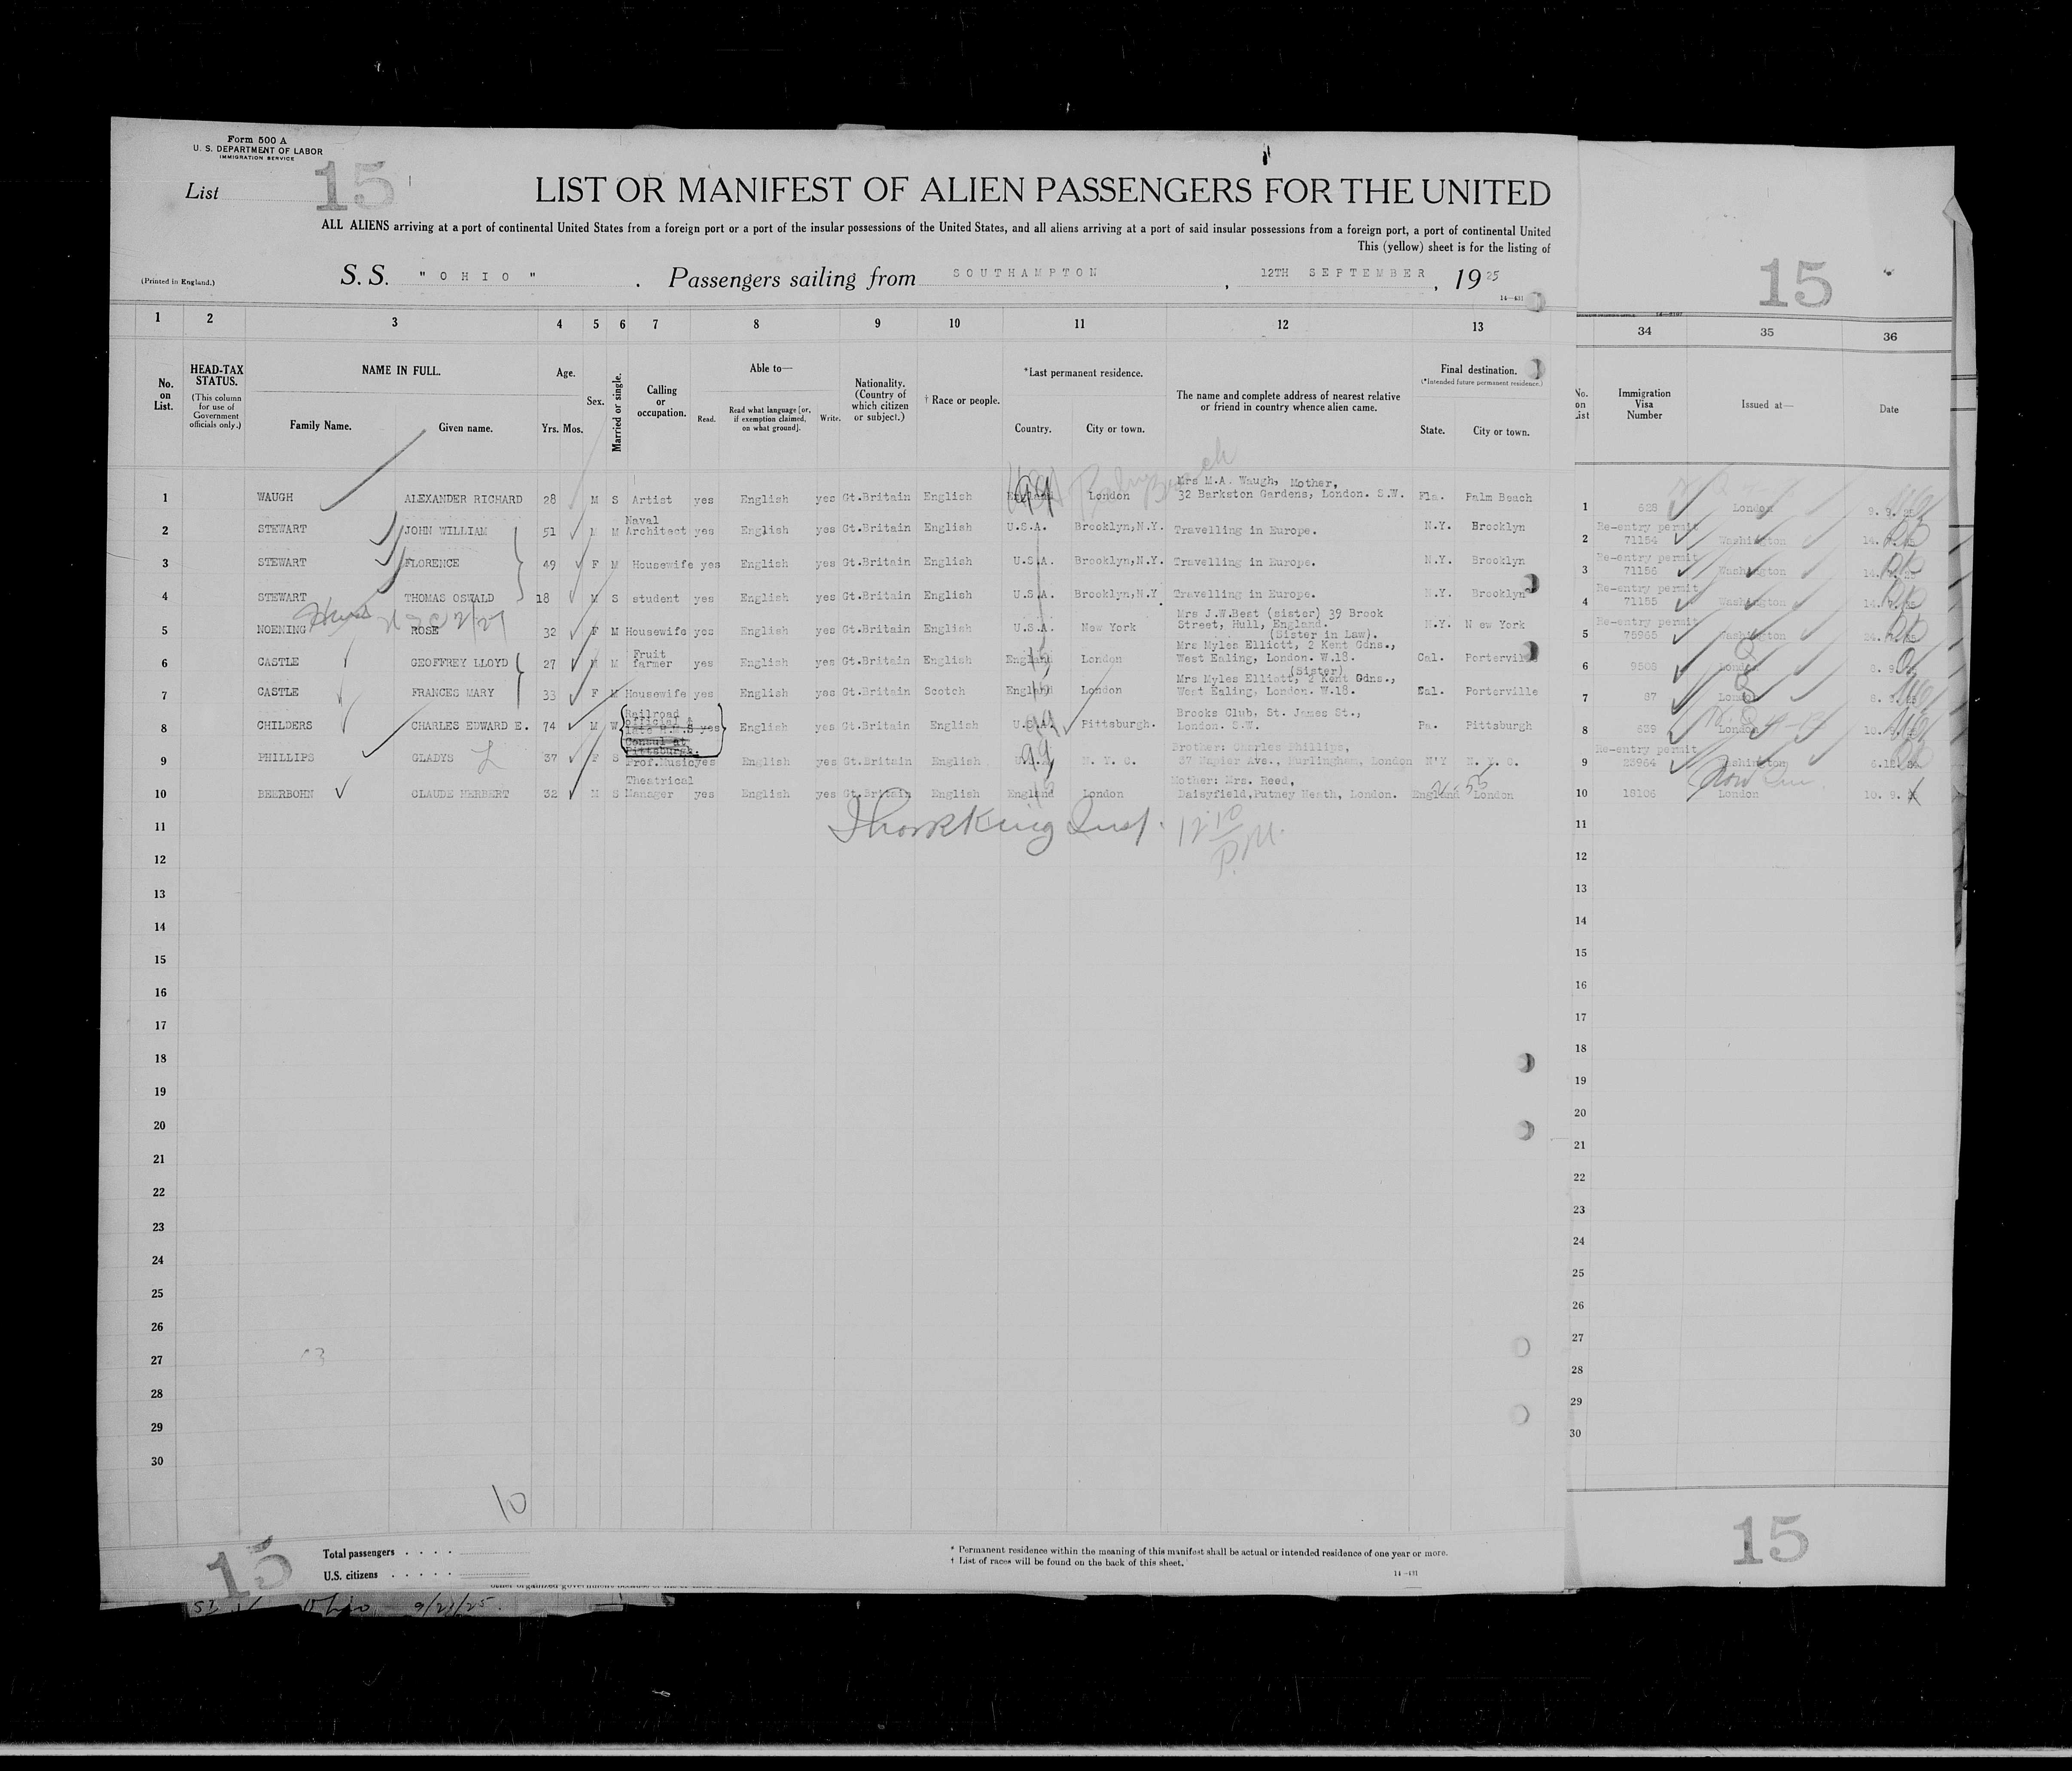 Form 500 A
U. S. DEPARTMENT OF LABOR
IMMIGRATION SERVICE
List 15
LIST OR MANIFEST OF ALIEN PASSENGERS FOR THE UNITED
ALL ALIENS arriving at a port of continental United States from a foreign port or a port of the insular possessions of the United States, and all aliens arriving at a port of said insular possessions from a foreign port, a port of continental United
This (yellow) sheet is for the listing of
(Printed in England.)
S.S. "OHIO" . Passengers sailing from SOUTHAMPTON , 12TH SEPTEMBER , 1925
14—431
15
1 2 3 4 5 6 7 8 9 10 11 12 13 34 35 36
No. on List.
HEAD-TAX STATUS.
(This column for use of Government officials only.)
NAME IN FULL.
Family Name. Given name.
Age.
Yrs. Mos.
Sex.
Married or single.
Calling or occupation.
Able to—
Read. Read what language [or, if exemption claimed, on what ground]. Write.
Nationality. (Country of which citizen or subject.)
† Race or people.
*Last permanent residence.
Country. City or town.
The name and complete address of nearest relative or friend in country whence alien came.
Final destination.
(*Intended future permanent residence.)
State. City or town.
No. on List
Immigration Visa Number
Issued at—
Date
1 WAUGH ALEXANDER RICHARD 28 M S Artist yes English yes Gt.Britain English England London Mrs M.A. Waugh, Mother, 32 Barkston Gardens, London. S.W. Fla. Palm Beach 1 628 London 9. 9. 25
2 STEWART JOHN WILLIAM 51 M M Naval Architect yes English yes Gt.Britain English U.S.A. Brooklyn,N.Y. Travelling in Europe. N.Y. Brooklyn 2 Re-entry permit 71154 Washington 14.
3 STEWART FLORENCE 49 F M Housewife yes English yes Gt.Britain English U.S.A. Brooklyn,N.Y. Travelling in Europe. N.Y. Brooklyn 3 Re-entry permit 71156 Washington 14.
4 STEWART THOMAS OSWALD 18 M S student yes English yes Gt.Britain English U.S.A. Brooklyn,N.Y. Travelling in Europe. N.Y. Brooklyn 4 Re-entry permit 71155 Washington 14.
5 NOENING ROSE 32 F M Housewife yes English yes Gt.Britain English U.S.A. New York Mrs J.W.Best (sister) 39 Brook Street, Hull, England. N.Y. New York 5 Re-entry permit 75965 Washington 24.
6 CASTLE GEOFFREY LLOYD 27 M M Fruit farmer yes English yes Gt.Britain English England London (Sister in Law). Mrs Myles Elliott, 2 Kent Gdns., West Ealing, London. W.18. Cal. Porterville 6 9508 London 8. 9.
7 CASTLE FRANCES MARY 33 F M Housewife yes English yes Gt.Britain Scotch England London (Sister) Mrs Myles Elliott, 2 Kent Gdns., West Ealing, London. W.18. Cal. Porterville 7 87 London 8. 9.
8 CHILDERS CHARLES EDWARD E. 74 M W Railroad official & late H.M.S Consul at Pittsburgh. yes English yes Gt.Britain English U.S.A. Pittsburgh. Brooks Club, St. James St., London. S.W. Pa. Pittsburgh 8 639 London 10.
9 PHILLIPS GLADYS 37 F S Prof.Music yes English yes Gt.Britain English U.S.A. N. Y. C. Brother: Charles Phillips, 37 Napier Ave., Hurlingham, London N'Y N. Y. C. 9 Re-entry permit 23964 Washington
10 BEERBOHN CLAUDE HERBERT 32 M S Theatrical Manager yes English yes Gt.Britain English England London Mother: Mrs. Reed, Daisyfield,Putney Heath, London. England London 10 18106 London 10. 9.
11 12 10 P.M. 11
12 12
13 13
14 14
15 15
16 16
17 17
18 18
19 19
20 20
21 21
22 22
23 23
24 24
25 25
26 26
27 27
28 28
29 29
30 30
10
15
Total passengers . . . .
U.S. citizens . . . . .
* Permanent residence within the meaning of this manifest shall be actual or intended residence of one year or more.
† List of races will be found on the back of this sheet.
14—431
15
9/21/25.